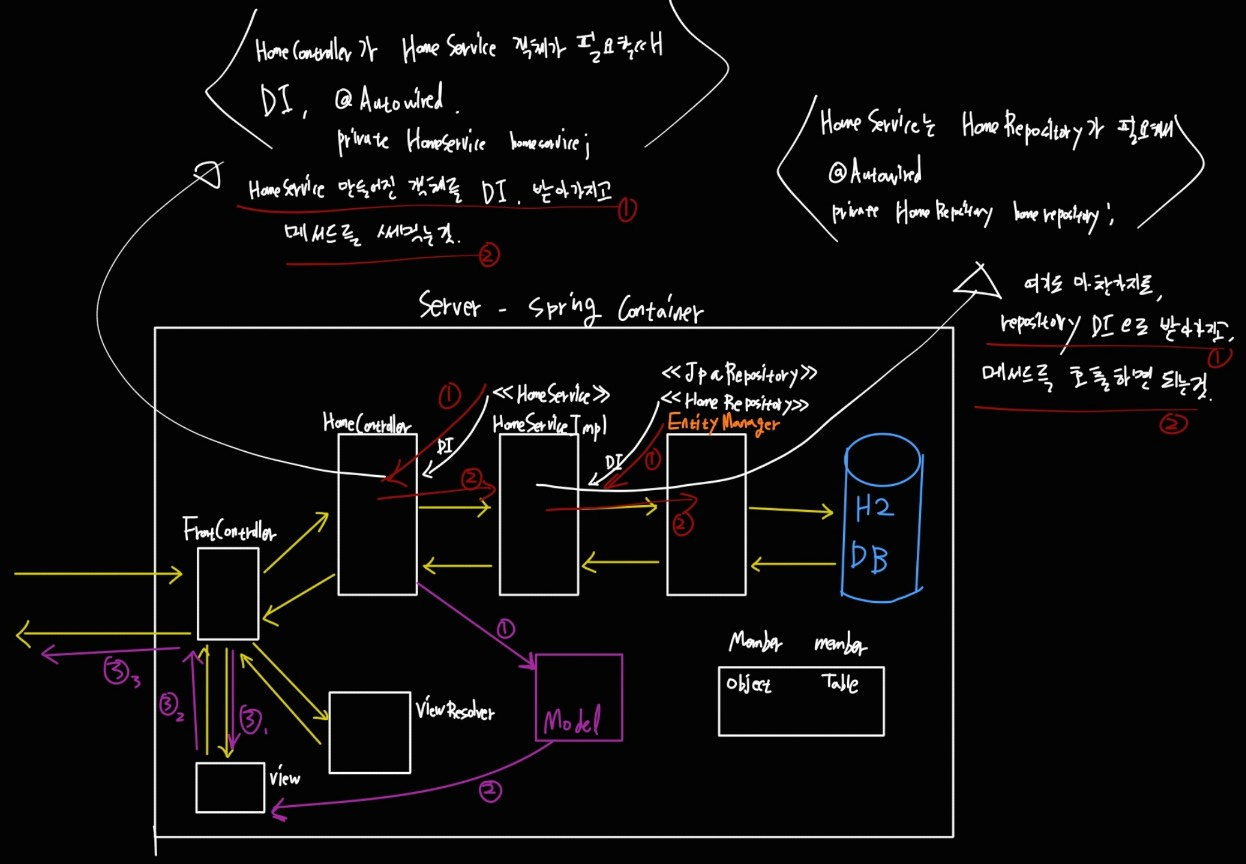 HomeController가 HomeService 객체가 필요할때
DI, @Autowired.
private HomeService homeservice;
HomeService 만들어진 객체를 DI. 받아가지고
①
메서드를 써먹는것.
②
HomeService는 HomeRepository가 필요해서
@Autowired
private HomeRepository homerepository;
여기도 마찬가지로,
repository DI으로 받아가지고,
①
메서드를 호출하면 되는것.
②
Server - Spring Container
<<JpaRepository>>
① <<HomeService>> <<HomeRepository>>
HomeController HomeServiceImpl EntityManager
DI DI ①
② ②
H2
DB
FrontController
①
Member member
Object Table
③₃
③₂ ③₁
ViewResolver
Model
View
②